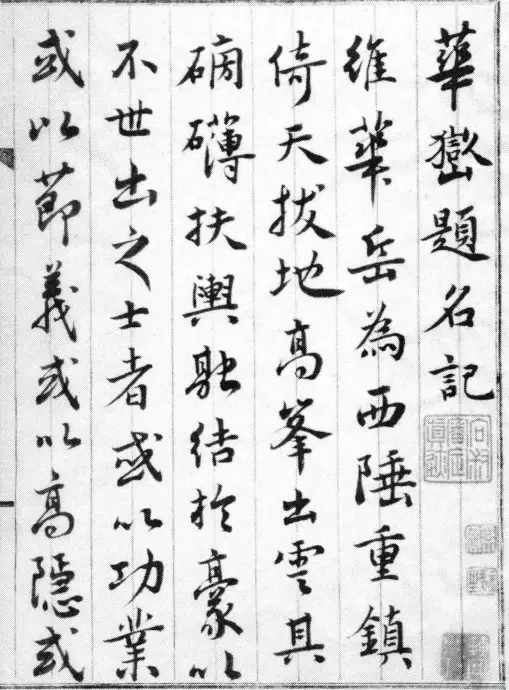 華嶽題名記
維華岳為西陲重鎮
倚天拔地高峯出雲其
磅礴扶輿融結於豪以
不世出之士者或以功業
或以節義或以高隱或